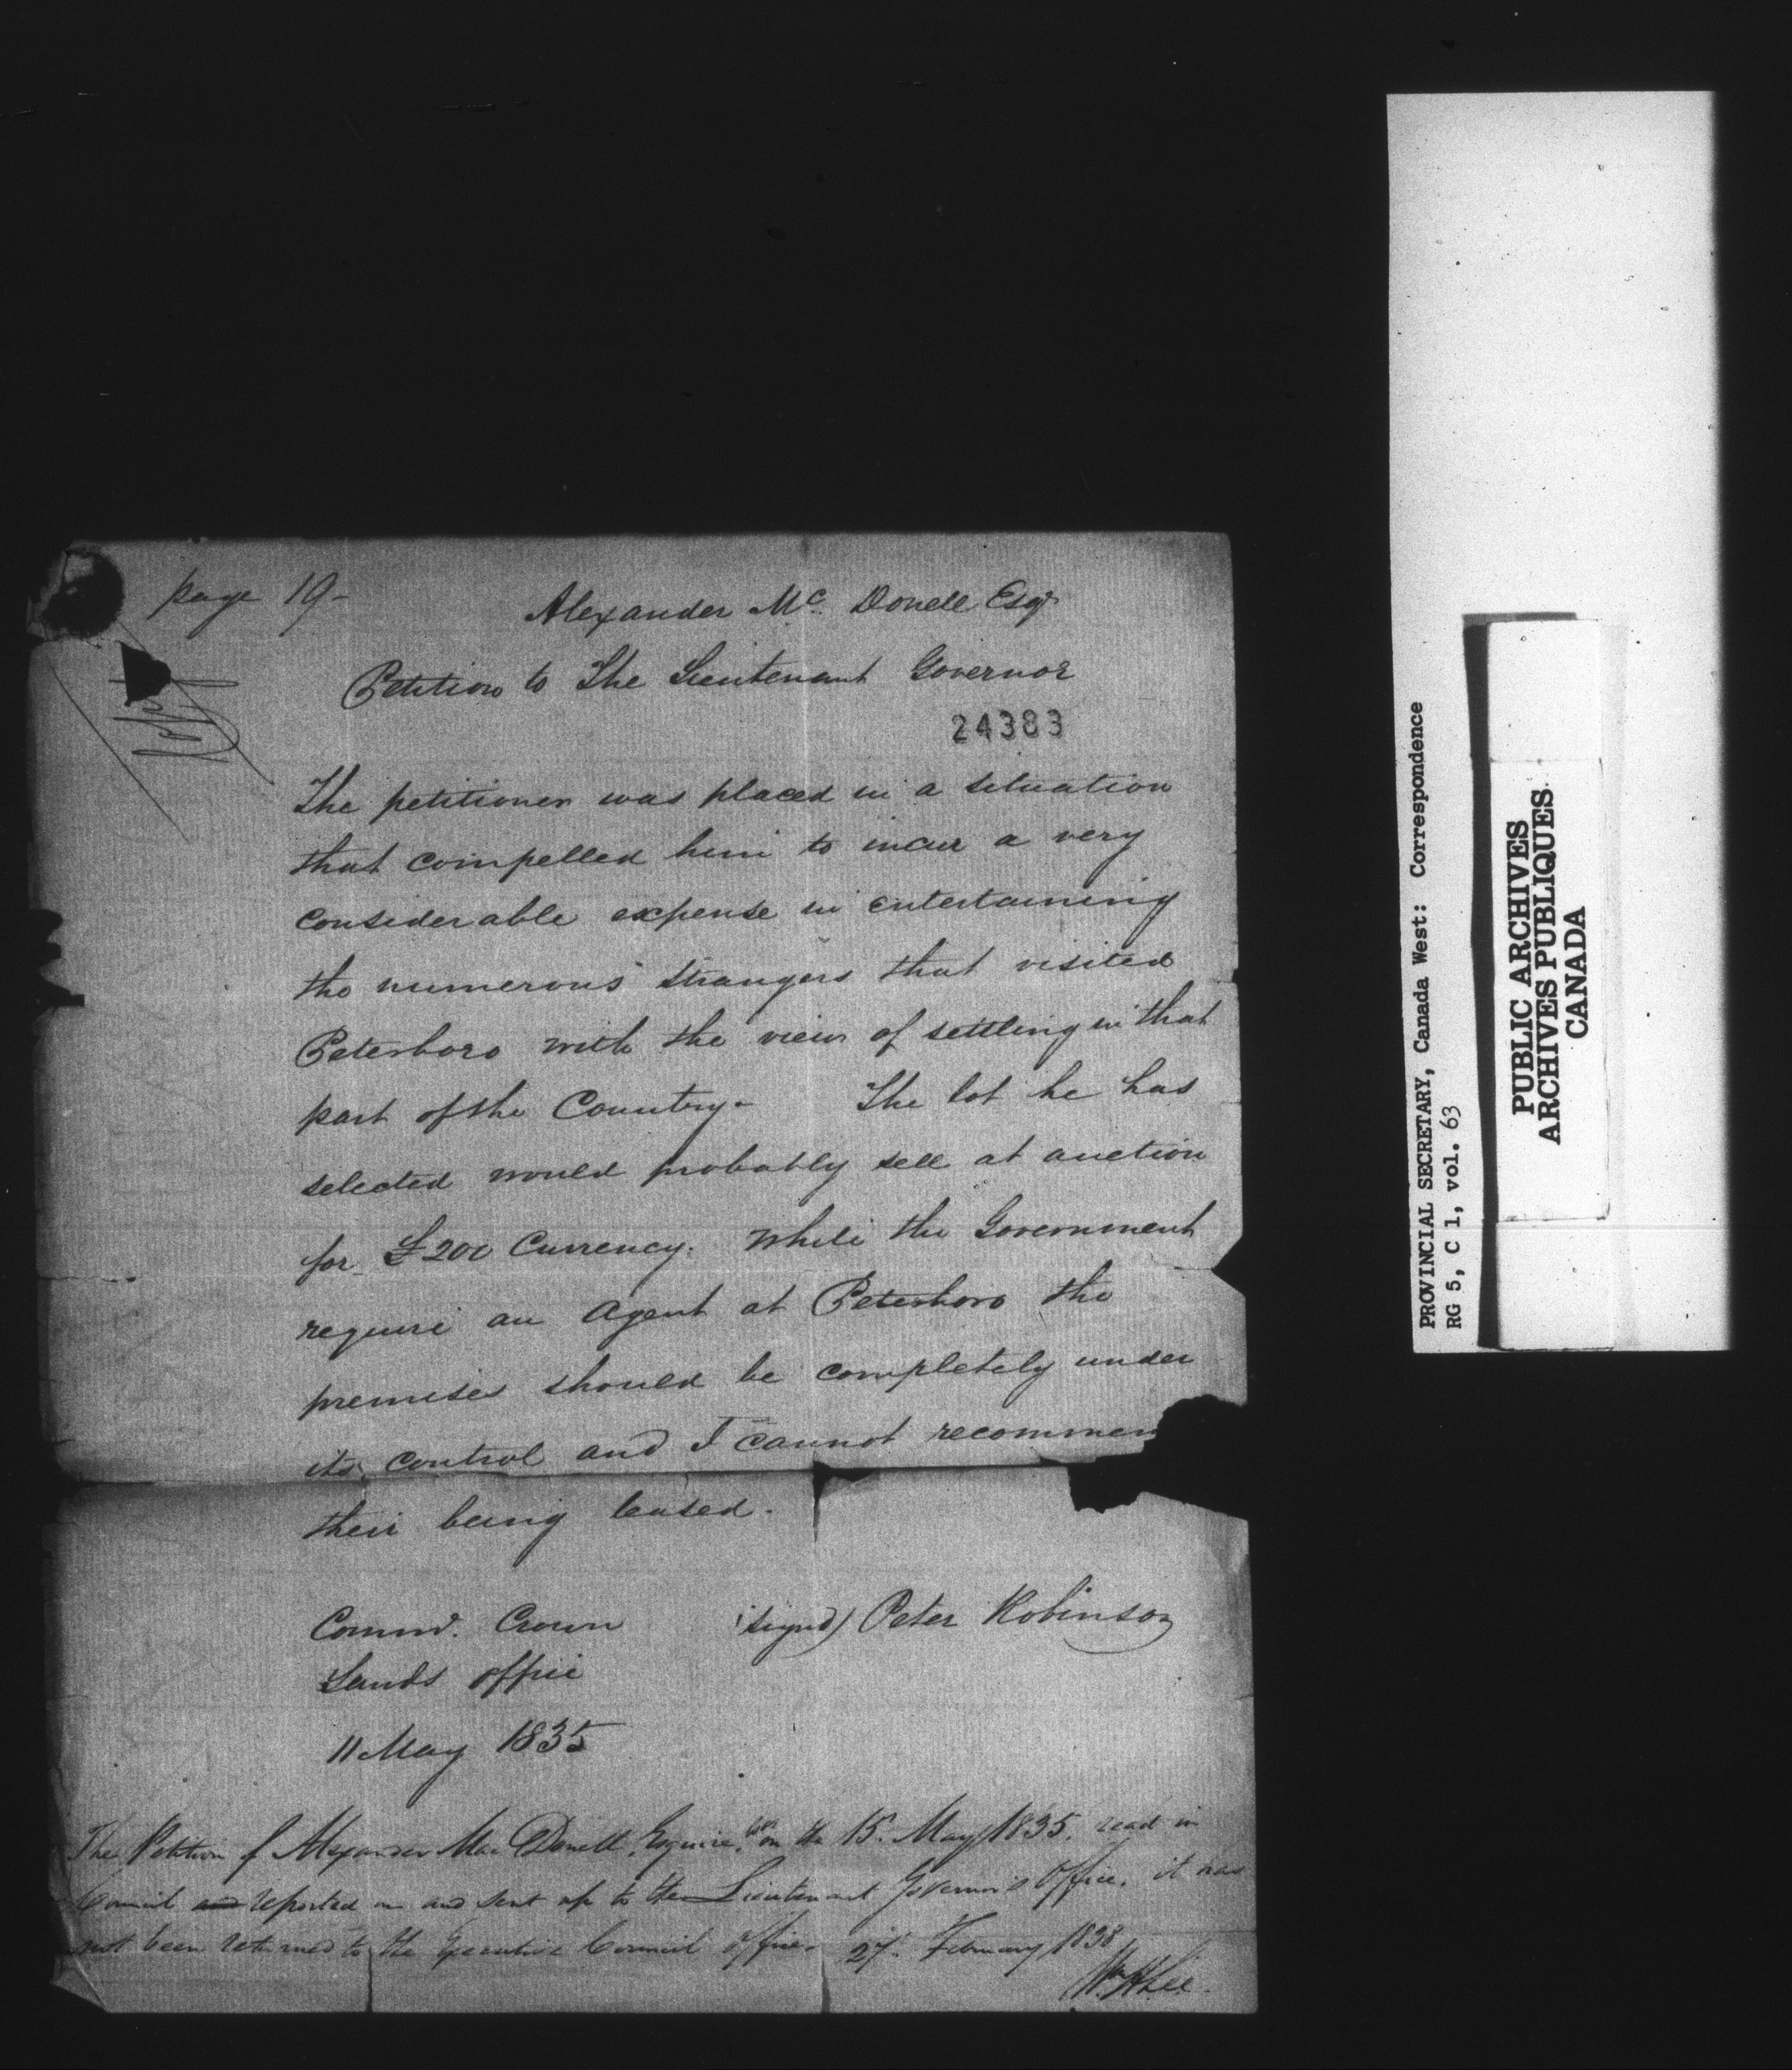 page 19-
Alexander Mc. Donell Esqr
Petition to The Lieutenant Governor
24383
The petitioner was placed in a situation
that compelled him to incur a very
considerable expense in entertaining
the numerous strangers that visited
Peterboro with the view of settling in that
part of the Country- The lot he has
selected would probably sell at auction
for £200 Currency. While the Government
require an Agent at Peterboro the
premises should be completely under
its control and I cannot recommen
their being leased.
Commr. Crown (signd) Peter Robinson
Lands office
11 May 1835
The Petition of Alexander Mac Donell, Esquire, was on the 15. May 1835, read in
Council and reported on and sent up to the Lieutenant Governor's Office. it has
not been returned to the Executive Council Office. 27. February 1838
Wm H Lee.
PROVINCIAL SECRETARY, Canada West: Correspondence
RG 5, C 1, vol. 63
PUBLIC ARCHIVES
ARCHIVES PUBLIQUES
CANADA